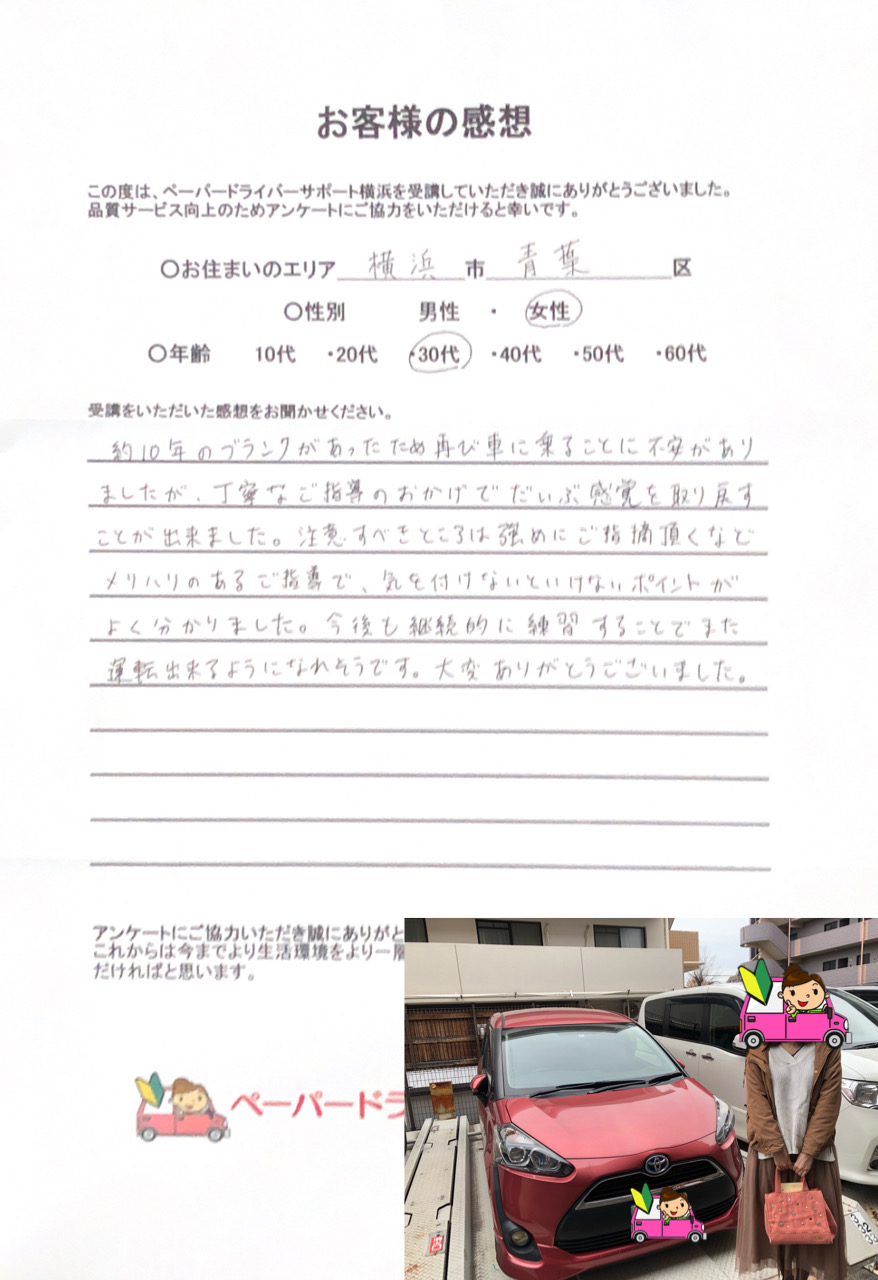 お客様の感想
この度は、ペーパードライバーサポート横浜を受講していただき誠にありがとうございました。
品質サービス向上のためアンケートにご協力をいただけると幸いです。
〇お住まいのエリア 横浜 市 青葉 区
〇性別 男性 ・ 女性
〇年齢 10代 ・20代 ・30代 ・40代 ・50代 ・60代
受講をいただいた感想をお聞かせください。
約10年のブランクがあったため再び車に乗ることに不安があり
ましたが、丁寧なご指導のおかげでだいぶ感覚を取り戻す
ことが出来ました。注意すべきところは強めにご指摘頂くなど
メリハリのあるご指導で、気を付けないといけないポイントが
よく分かりました。今後も継続的に練習することでまた
運転出来るようになれそうです。大変ありがとうございました。
アンケートにご協力いただき誠にありがと
これからは今までより生活環境をより一層
だければと思います。
ペーパードラ